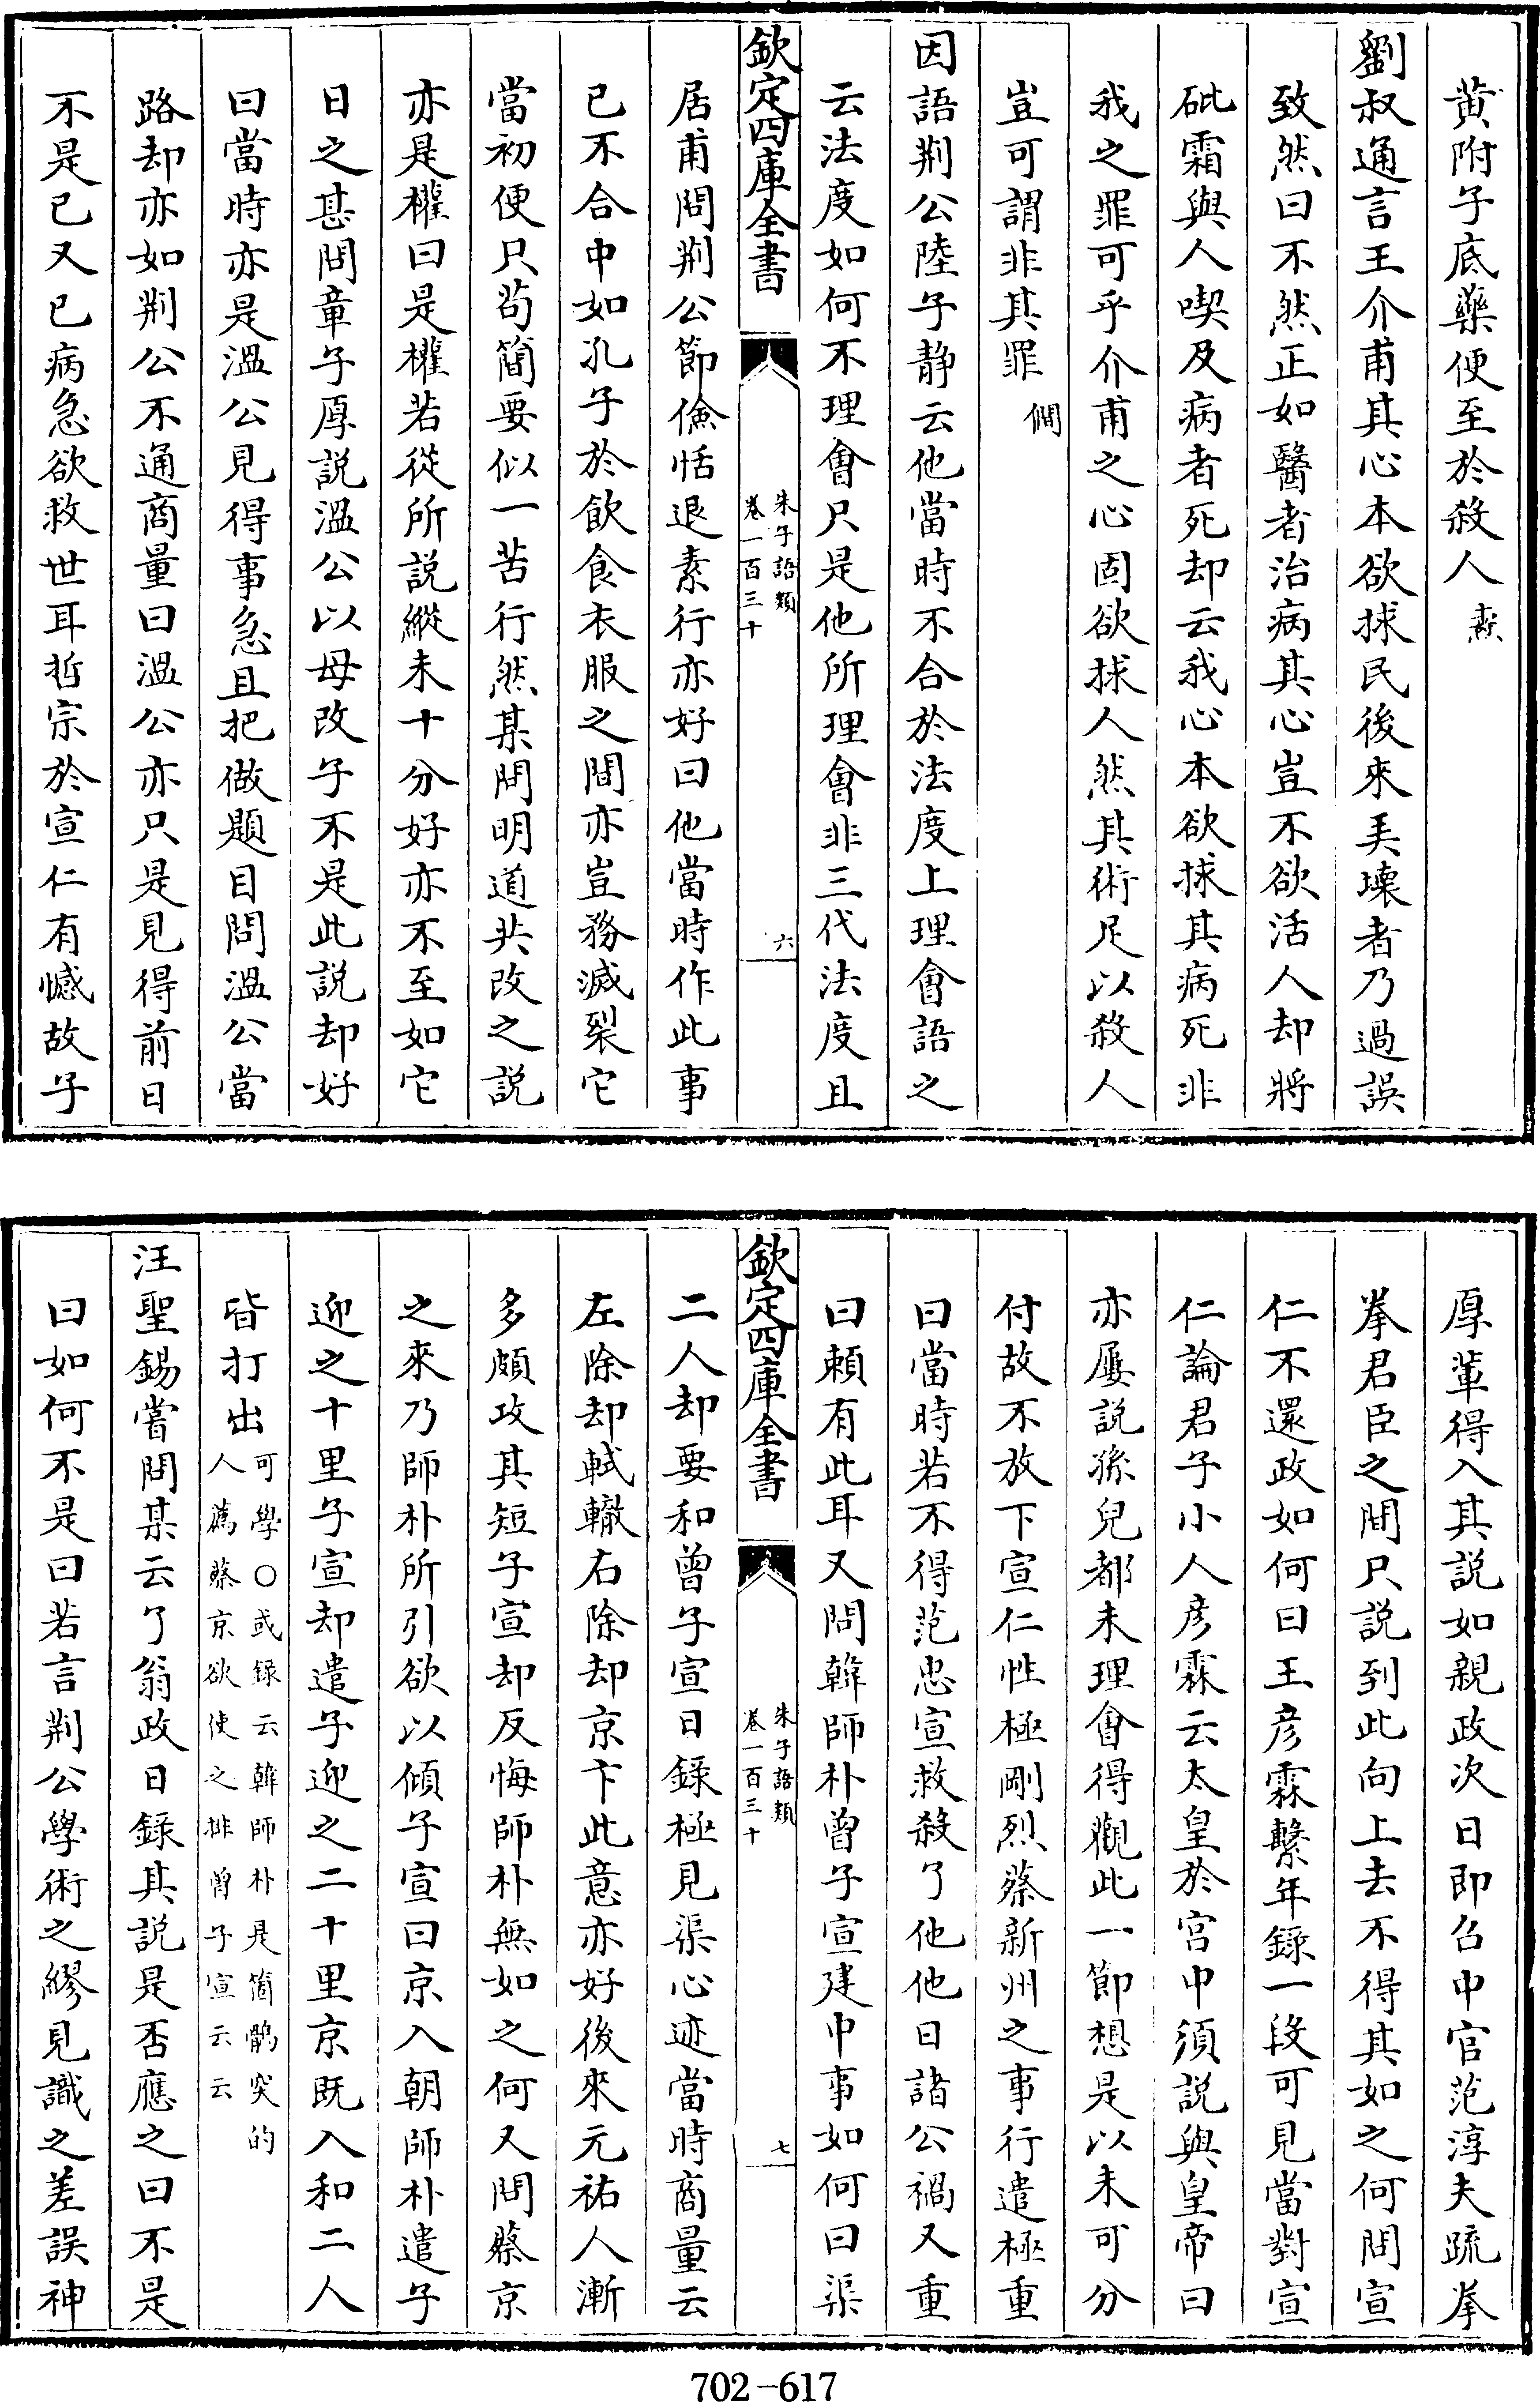 黄附子底藥便至於殺人 燾
劉叔通言王介甫其心本欲捄民後來弄壊者乃過誤
致然曰不然正如醫者治病其心豈不欲活人却將
砒霜與人喫及病者死却云我心本欲捄其病死非
我之罪可乎介甫之心固欲捄人然其術足以殺人
豈可謂非其罪 僩
因語荆公陸子静云他當時不合於法度上理會語之
云法度如何不理會只是他所理會非三代法度且
欽定四庫全書
朱子語類
卷一百三十
六
居甫問荆公節儉恬退素行亦好曰他當時作此事
已不合中如孔子於飲食衣服之間亦豈務滅裂它
當初便只茍簡要似一苦行然某問明道共改之説
亦是權曰是權若從所説縱未十分好亦不至如它
日之甚問章子厚説溫公以母改子不是此説却好
曰當時亦是溫公見得事急且把做題目問溫公當
路却亦如荆公不通商量曰溫公亦只是見得前日
不是已又已病急欲救世耳哲宗於宣仁有憾故子
厚輩得入其説如親政次日即召中官范淳夫疏拳
拳君臣之間只説到此向上去不得其如之何問宣
仁不還政如何曰王彦霖繫年錄一段可見當對宣
仁論君子小人彦霖云太皇於宫中須説與皇帝曰
亦屢説孫兒都未理會得觀此一節想是以未可分
付故不放下宣仁性極剛烈蔡新州之事行遣極重
曰當時若不得范忠宣救殺了他他日諸公禍又重
曰頼有此耳又問韓師朴曾子宣建中事如何曰渠
欽定四庫全書
朱子語類
卷一百三十
七
二人却要和曾子宣日錄極見渠心迹當時商量云
左除却軾轍右除却京卞此意亦好後來元祐人漸
多頗攻其短子宣却反悔師朴無如之何又問蔡京
之來乃師朴所引欲以傾子宣曰京入朝師朴遣子
迎之十里子宣却遣子迎之二十里京既入和二人
皆打出 可學○或録云韓師朴是箇鶻突的
人薦蔡京欲使之排曾子宣云云
汪聖錫嘗問某云了翁政日錄其説是否應之曰不是
曰如何不是曰若言荆公學術之繆見識之差誤神
702-617